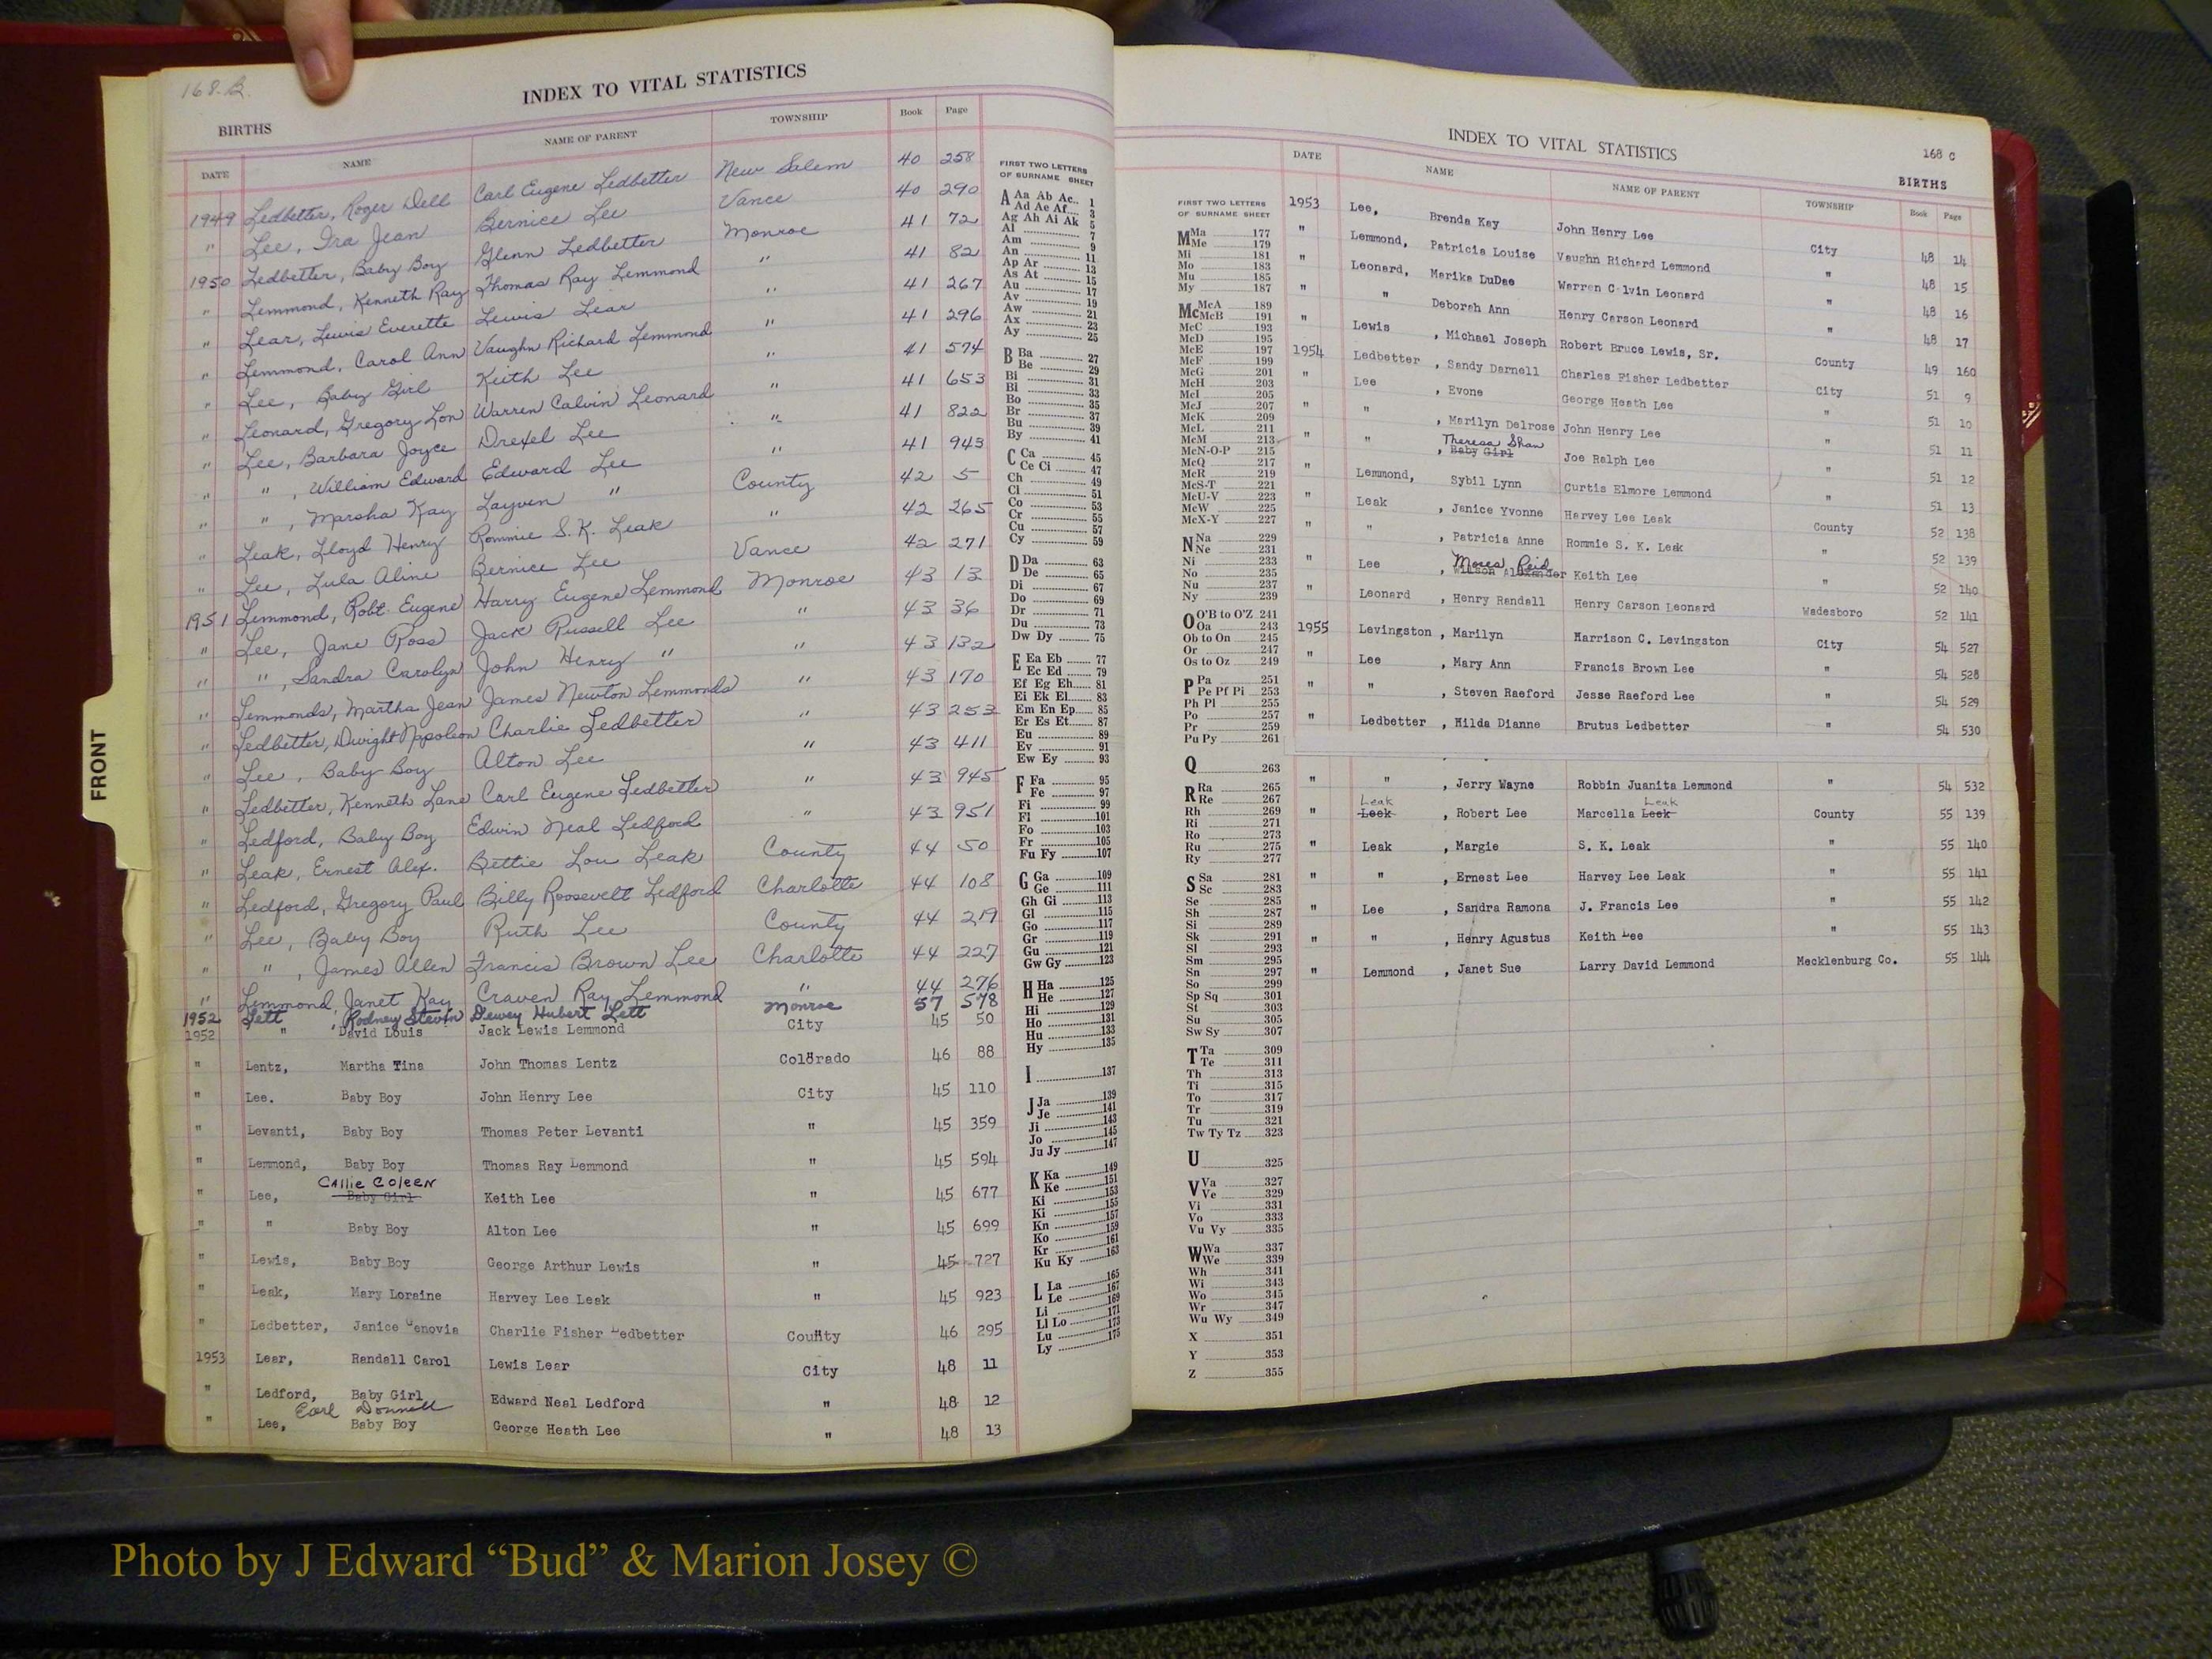 168 B.
INDEX TO VITAL STATISTICS
BIRTHS
DATE NAME NAME OF PARENT TOWNSHIP Book Page
1949 Ledbetter, Roger Dell Carl Eugene Ledbetter New Salem 40 258
" Lee, Ira Jean Bernice Lee Vance 40 290
1950 Ledbetter, Baby Boy Glenn Ledbetter Monroe 41 72
" Lemmond, Kenneth Ray Thomas Ray Lemmond " 41 82
" Lear, Lewis Everette Lewis Lear " 41 267
" Lemmond, Carol Ann Vaughn Richard Lemmond " 41 296
" Lee, Baby Girl Keith Lee " 41 574
" Leonard, Gregory Lon Warren Calvin Leonard " 41 653
" Lee, Barbara Joyce Drexel Lee " 41 822
" " , William Edward Edward Lee " 41 943
" " , Marsha Kay Layven " County 42 5
" Leak, Lloyd Henry Rommie S. K. Leak " 42 265
" Lee, Lula Aline Bernice Lee Vance 42 271
1951 Lemmond, Robt. Eugene Harry Eugene Lemmond Monroe 43 13
" Lee, Jane Ross Jack Russell Lee " 43 36
" " , Sandra Carolyn John Henry " " 43 132
" Lemmonds, Martha Jean James Newton Lemmonds " 43 170
" Ledbetter, Dwight Napoleon Charlie Ledbetter " 43 253
" Lee, Baby Boy Alton Lee " 43 411
" Ledbetter, Kenneth Lane Carl Eugene Ledbetter " 43 945
" Ledford, Baby Boy Edwin Neal Ledford " 43 951
" Leak, Ernest Alex. Bettie Lou Leak County 44 50
" Ledford, Gregory Paul Billy Roosevelt Ledford Charlotte 44 108
" Lee, Baby Boy Ruth Lee County 44 219
" " , James Allen Francis Brown Lee Charlotte 44 227
" Lemmond, Janet Kay Craven Ray Lemmond " 44 276
1952 Lett , Rodney Stevin Dewey Hubert Lett Monroe 57 578
1952 " David Louis Jack Lewis Lemmond City 45 50
" Lentz, Martha Tina John Thomas Lentz Colorado 46 88
" Lee. Baby Boy John Henry Lee City 45 110
" Levanti, Baby Boy Thomas Peter Levanti " 45 359
" Lemmond, Baby Boy Thomas Ray Lemmond " 45 594
CAllie COleEN
" Lee, Baby Girl Keith Lee " 45 677
" " Baby Boy Alton Lee " 45 699
" Lewis, Baby Boy George Arthur Lewis " 45 727
" Leak, Mary Loraine Harvey Lee Leak " 45 923
" Ledbetter, Janice Genovia Charlie Fisher Ledbetter County 46 295
1953 Lear, Randall Carol Lewis Lear City 48 11
" Ledford, Baby Girl Edward Neal Ledford " 48 12
Earl Donnell
" Lee, Baby Boy George Heath Lee " 48 13
FRONT
FIRST TWO LETTERS
OF SURNAME SHEET
A Aa Ab Ac.. 1
Ad Ae Af.... 3
Ag Ah Ai Ak 5
Al 7
Am 9
An 11
Ap Ar 13
As At 15
Au 17
Av 19
Aw 21
Ax 23
Ay 25
B Ba 27
Be 29
Bi 31
Bl 33
Bo 35
Br 37
Bu 39
By 41
C Ca 45
Ce Ci 47
Ch 49
Cl 51
Co 53
Cr 55
Cu 57
Cy 59
D Da 63
De 65
Di 67
Do 69
Dr 71
Du 73
Dw Dy 75
E Ea Eb 77
Ec Ed 79
Ef Eg Eh 81
Ei Ek El 83
Em En Ep 85
Er Es Et 87
Eu 89
Ev 91
Ew Ey 93
F Fa 95
Fe 97
Fi 99
Fl 101
Fo 103
Fr 105
Fu Fy 107
G Ga 109
Ge 111
Gh Gi 113
Gl 115
Go 117
Gr 119
Gu 121
Gw Gy 123
H Ha 125
He 127
Hi 129
Ho 131
Hu 133
Hy 135
I 137
J Ja 139
Je 141
Ji 143
Jo 145
Ju Jy 147
K Ka 149
Ke 151
Ki 153
Ki 155
Kn 157
Ko 159
Kr 161
Ku Ky 163
L La 165
Le 167
Li 169
Ll Lo 171
Lu 173
Ly 175
INDEX TO VITAL STATISTICS
168 C
BIRTHS
DATE NAME NAME OF PARENT TOWNSHIP Book Page
1953 Lee, Brenda Kay John Henry Lee City 48 14
" Lemmond, Patricia Louise Vaughn Richard Lemmond " 48 15
" Leonard, Marika LuDae Warren Calvin Leonard " 48 16
" " Deborah Ann Henry Carson Leonard " 48 17
" Lewis , Michael Joseph Robert Bruce Lewis, Sr. County 49 160
1954 Ledbetter , Sandy Darnell Charles Fisher Ledbetter City 51 9
" Lee , Evone George Heath Lee " 51 10
" " , Marilyn Delrose John Henry Lee " 51 11
Theresa Shan
" " , Baby Girl Joe Ralph Lee " 51 12
" Lemmond, Sybil Lynn Curtis Elmore Lemmond " 51 13
" Leak , Janice Yvonne Harvey Lee Leak County 52 138
" " , Patricia Anne Rommie S. K. Leak " 52 139
Moses Reid
" Lee , Wilson Alexander Keith Lee " 52 140
" Leonard , Henry Randall Henry Carson Leonard Wadesboro 52 141
1955 Levingston , Marilyn Harrison C. Levingston City 54 527
" Lee , Mary Ann Francis Brown Lee " 54 528
" " , Steven Raeford Jesse Raeford Lee " 54 529
" Ledbetter , Hilda Dianne Brutus Ledbetter " 54 530
" " , Jerry Wayne Robbin Juanita Lemmond " 54 532
Leak Leak
" Leek , Robert Lee Marcella Leek County 55 139
" Leak , Margie S. K. Leak " 55 140
" " , Ernest Lee Harvey Lee Leak " 55 141
" Lee , Sandra Ramona J. Francis Lee " 55 142
" " , Henry Agustus Keith Lee " 55 143
" Lemmond , Janet Sue Larry David Lemmond Mecklenburg Co. 55 144
FIRST TWO LETTERS
OF SURNAME SHEET
M Ma 177
Me 179
Mi 181
Mo 183
Mu 185
My 187
Mc McA 189
McB 191
McC 193
McD 195
McE 197
McF 199
McG 201
McH 203
McI 205
McJ 207
McK 209
McL 211
McM 213
McN-O-P 215
McQ 217
McR 219
McS-T 221
McU-V 223
McW 225
McX-Y 227
N Na 229
Ne 231
Ni 233
No 235
Nu 237
Ny 239
O O'B to O'Z 241
Oa 243
Ob to On 245
Or 247
Os to Oz 249
P Pa 251
Pe Pf Pi 253
Ph Pl 255
Po 257
Pr 259
Pu Py 261
Q 263
R Ra 265
Re 267
Rh 269
Ri 271
Ro 273
Ru 275
Ry 277
S Sa 281
Sc 283
Se 285
Sh 287
Si 289
Sk 291
Sl 293
Sm 295
Sn 297
So 299
Sp Sq 301
St 303
Su 305
Sw Sy 307
T Ta 309
Te 311
Th 313
Ti 315
To 317
Tr 319
Tu 321
Tw Ty Tz 323
U 325
V Va 327
Ve 329
Vi 331
Vo 333
Vu Vy 335
W Wa 337
We 339
Wh 341
Wi 343
Wo 345
Wr 347
Wu Wy 349
X 351
Y 353
Z 355
Photo by J Edward “Bud” & Marion Josey ©